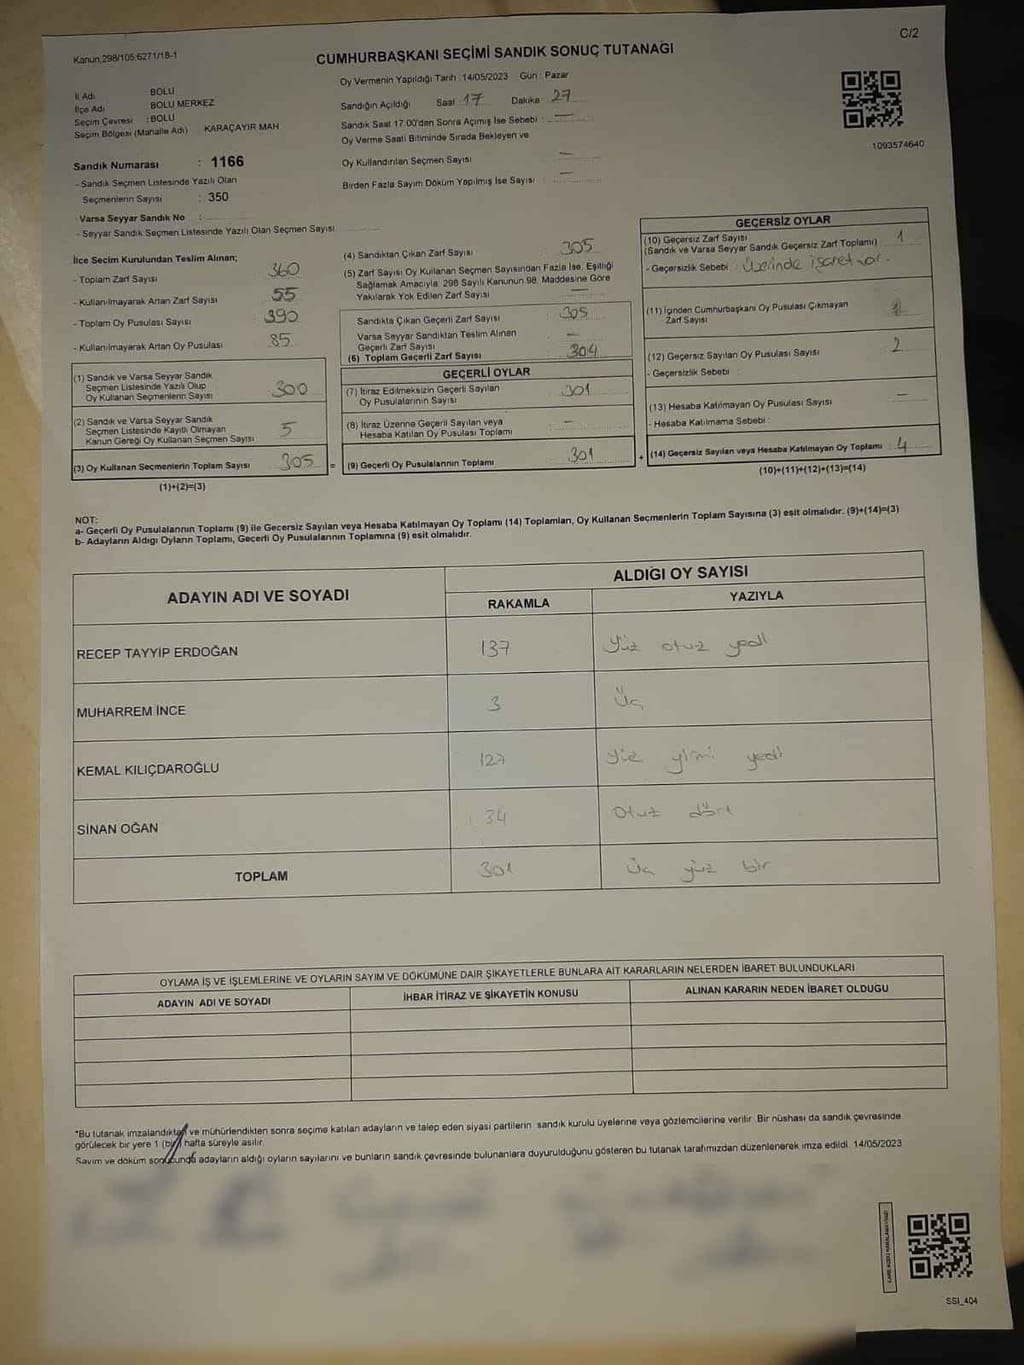 C/2
Kanun:298/105;6271/18-1
CUMHURBAŞKANI SEÇİMİ SANDIK SONUÇ TUTANAĞI
Oy Vermenin Yapıldığı Tarih : 14/05/2023 Gün : Pazar
İl Adı BOLU
İlçe Adı BOLU MERKEZ
Seçim Çevresi : BOLU
Seçim Bölgesi (Mahalle Adı) KARAÇAYIR MAH
Sandığın Açıldığı Saat 17 Dakika 27
Sandık Saat 17:00'den Sonra Açılmış İse Sebebi : —
Oy Verme Saati Bitiminde Sırada Bekleyen ve
Oy Kullandırılan Seçmen Sayısı —
Birden Fazla Sayım Döküm Yapılmış İse Sayısı : —
1093574640
Sandık Numarası : 1166
- Sandık Seçmen Listesinde Yazılı Olan
Seçmenlerin Sayısı : 350
Varsa Seyyar Sandık No :
- Seyyar Sandık Seçmen Listesinde Yazılı Olan Seçmen Sayısı
İlçe Seçim Kurulundan Teslim Alınan;
- Toplam Zarf Sayısı 360
- Kullanılmayarak Artan Zarf Sayısı 55
- Toplam Oy Pusulası Sayısı 390
- Kullanılmayarak Artan Oy Pusulası 85
(1) Sandık ve Varsa Seyyar Sandık
Seçmen Listesinde Yazılı Olup
Oy Kullanan Seçmenlerin Sayısı 300
(2) Sandık ve Varsa Seyyar Sandık
Seçmen Listesinde Kayıtlı Olmayan
Kanun Gereği Oy Kullanan Seçmen Sayısı 5
(3) Oy Kullanan Seçmenlerin Toplam Sayısı 305 =
(1)+(2)=(3)
(4) Sandıktan Çıkan Zarf Sayısı 305
(5) Zarf Sayısı Oy Kullanan Seçmen Sayısından Fazla İse, Eşitliği
Sağlamak Amacıyla 298 Sayılı Kanunun 98. Maddesine Göre
Yakılarak Yok Edilen Zarf Sayısı —
Sandıkta Çıkan Geçerli Zarf Sayısı 305
Varsa Seyyar Sandıktan Teslim Alınan
Geçerli Zarf Sayısı —
(6) Toplam Geçerli Zarf Sayısı 304
GEÇERLİ OYLAR
(7) İtiraz Edilmeksizin Geçerli Sayılan
Oy Pusulalarının Sayısı 301
(8) İtiraz Üzerine Geçerli Sayılan veya
Hesaba Katılan Oy Pusulası Toplamı —
(9) Geçerli Oy Pusulalarının Toplamı 301 +
GEÇERSİZ OYLAR
(10) Geçersiz Zarf Sayısı
(Sandık ve Varsa Seyyar Sandık Geçersiz Zarf Toplamı) 1
- Geçersizlik Sebebi : Üzerinde işaret var.
(11) İçinden Cumhurbaşkanı Oy Pusulası Çıkmayan
Zarf Sayısı
(12) Geçersiz Sayılan Oy Pusulası Sayısı 2
- Geçersizlik Sebebi :
(13) Hesaba Katılmayan Oy Pusulası Sayısı —
- Hesaba Katılmama Sebebi :
(14) Geçersiz Sayılan veya Hesaba Katılmayan Oy Toplamı 4
(10)+(11)+(12)+(13)=(14)
NOT:
a- Geçerli Oy Pusulalarının Toplamı (9) ile Gecersiz Sayılan veya Hesaba Katılmayan Oy Toplamı (14) Toplamları, Oy Kullanan Seçmenlerin Toplam Sayısına (3) esit olmalıdır. (9)+(14)=(3)
b- Adayların Aldığı Oyların Toplamı, Geçerli Oy Pusulalarının Toplamına (9) esit olmalıdır.
ADAYIN ADI VE SOYADI
ALDIĞI OY SAYISI
RAKAMLA YAZIYLA
RECEP TAYYİP ERDOĞAN 137 Yüz otuz yedi
MUHARREM İNCE 3 Üç
KEMAL KILIÇDAROĞLU 127 Yüz yirmi yedi
SİNAN OĞAN 34 Otuz dört
TOPLAM 301 Üç yüz bir
OYLAMA İŞ VE İŞLEMLERİNE VE OYLARIN SAYIM VE DÖKÜMÜNE DAİR ŞİKAYETLERLE BUNLARA AİT KARARLARIN NELERDEN İBARET BULUNDUKLARI
ADAYIN ADI VE SOYADI İHBAR İTİRAZ VE ŞİKAYETİN KONUSU ALINAN KARARIN NEDEN İBARET OLDUGU
*Bu tutanak imzalandıktan ve mühürlendikten sonra seçime katılan adayların ve talep eden siyasi partilerin sandık kurulu üyelerine veya gözlemcilerine verilir. Bir nüshası da sandık çevresinde
görülecek bir yere 1 (bir) hafta süreyle asılır.
Sayım ve döküm sonucunda adayların aldığı oyların sayılarını ve bunların sandık çevresinde bulunanlara duyurulduğunu gösteren bu tutanak tarafımızdan düzenlenerek imza edildi. 14/05/2023
SSI_404